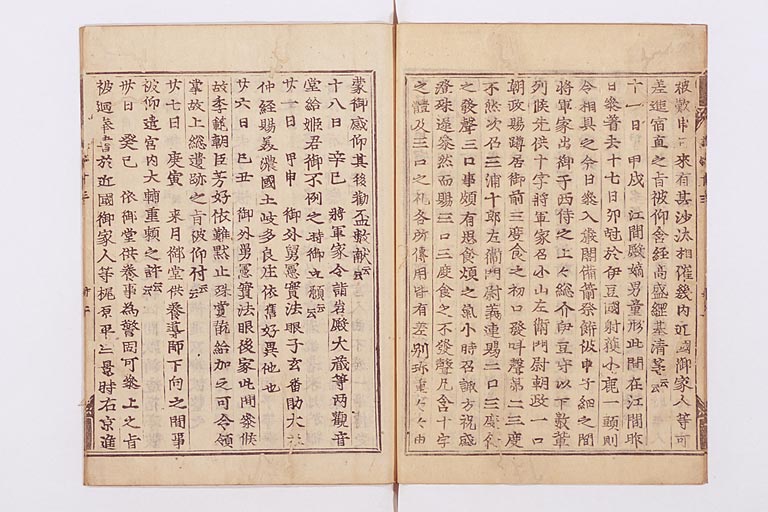 被歎申可来有甚沙汰相催幾内近國御家人等可
差進宿直之由被仰含経高盛經基清等云云
十一日 甲戌 江間殿嫡男童形此間在江間昨
日参着去十七日卯尅於伊豆國射獲小鹿一頭則
令相具之今日参入嚴閤備箭祭餅被申子細之間
将軍家出御于西侍之上上総介伊豆守以下数輩
列候先供十字将軍家召小山左衛門尉朝政一口
朝政賜蹲居御前三度食之初口發叫聲第二三度
不然次召三浦十郎左衛門尉義連賜二口三度食
之發聲三口事頗有思食煩之氣小時召諏方祝盛
澄殊遅参然而賜三口三度食之不發聲凡含十字
之體及三口之礼各所傳用皆有差別珍重之由
蒙御感仰其後勸盃数献云云
十八日 辛巳 将軍家令詣岩殿大藏等両觀音
堂給姫君御不例之時御立願云云
廿一日 甲申 御外舅憲實法眼子玄番助大
仲経賜美濃國土岐多良庄依舊好異他也
廿六日 己丑 御外舅憲實法眼後家此間参候
故季範朝臣芳好依難黙止殊賞翫給加之可令領
掌故上総遺跡之旨被仰付云云
廿七日 庚寅 来月御堂供養導師下向之間事
被仰遣宮内大輔重頼之許云云
廿日 癸巳 依御堂供養事為警固可参上之旨
被廻奉書於近國御家人等梶原平三景時右京進